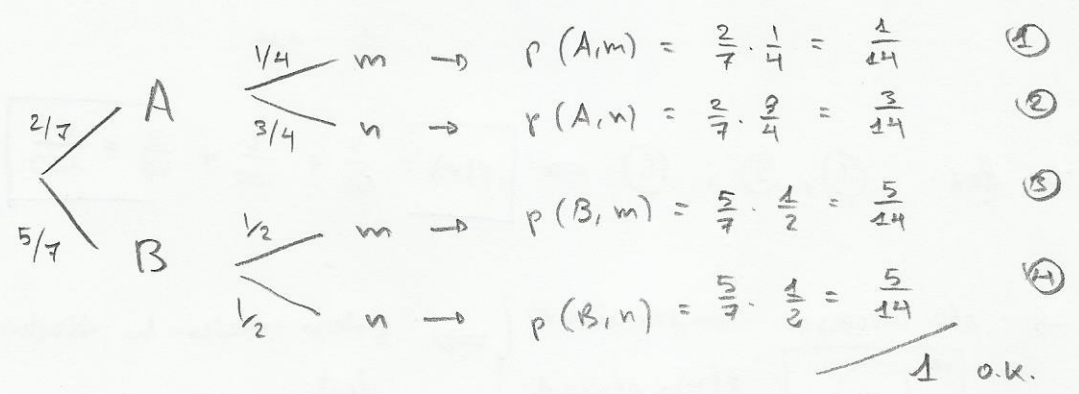 1/4 m → p (A,m) = 2/7 · 1/4 = 1/14 ①
2/7 A
3/4 n → p (A,n) = 2/7 · 3/4 = 3/14 ②
1/2 m → p (B,m) = 5/7 · 1/2 = 5/14 ③
5/7 B
1/2 n → p (B,n) = 5/7 · 1/2 = 5/14 ④
1 o.k.